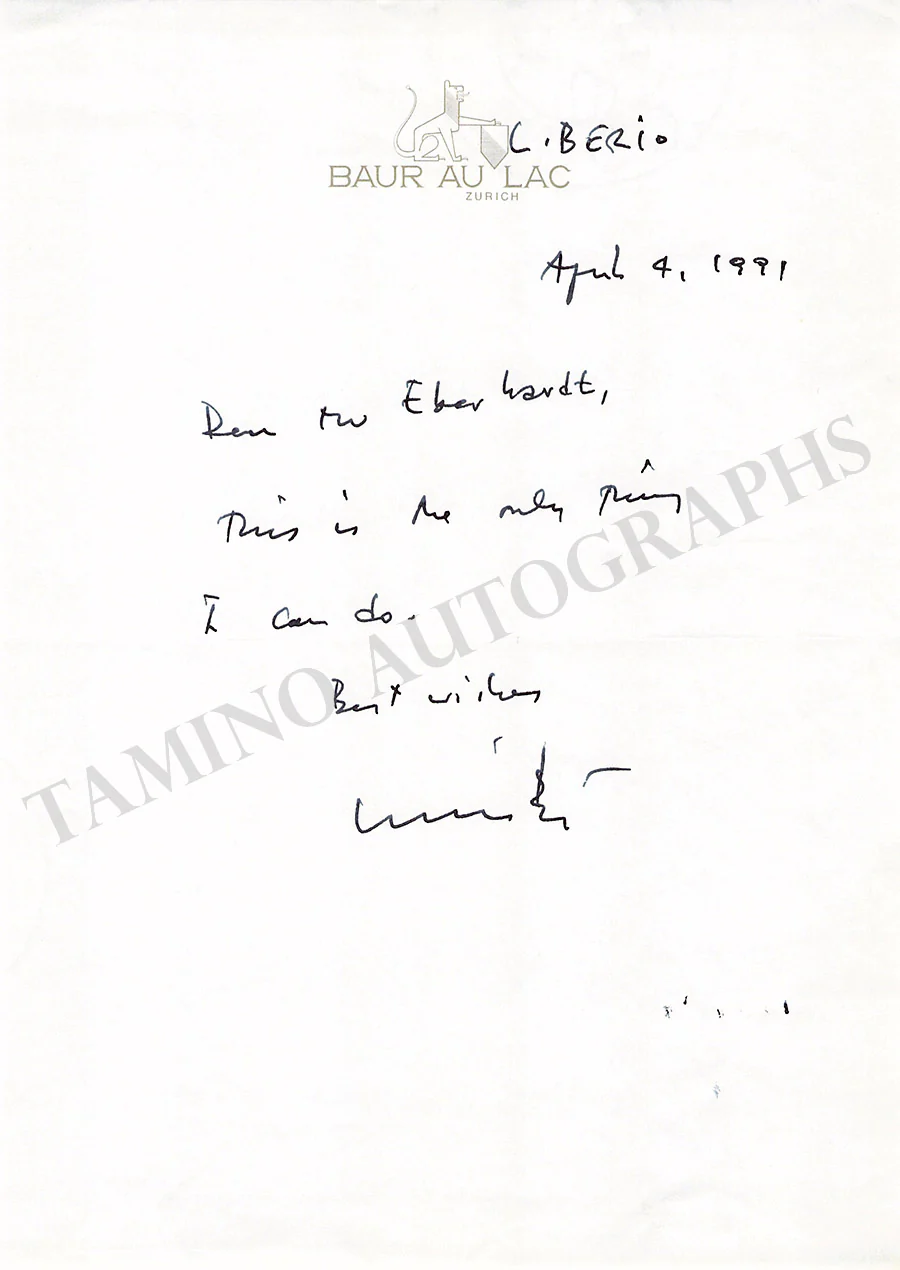 L. BERIO
BAUR AU LAC
ZURICH
April 4, 1991
Dear Mr Eberhardt,
This is the only thing
I can do.
Best wishes
TAMINO AUTOGRAPHS